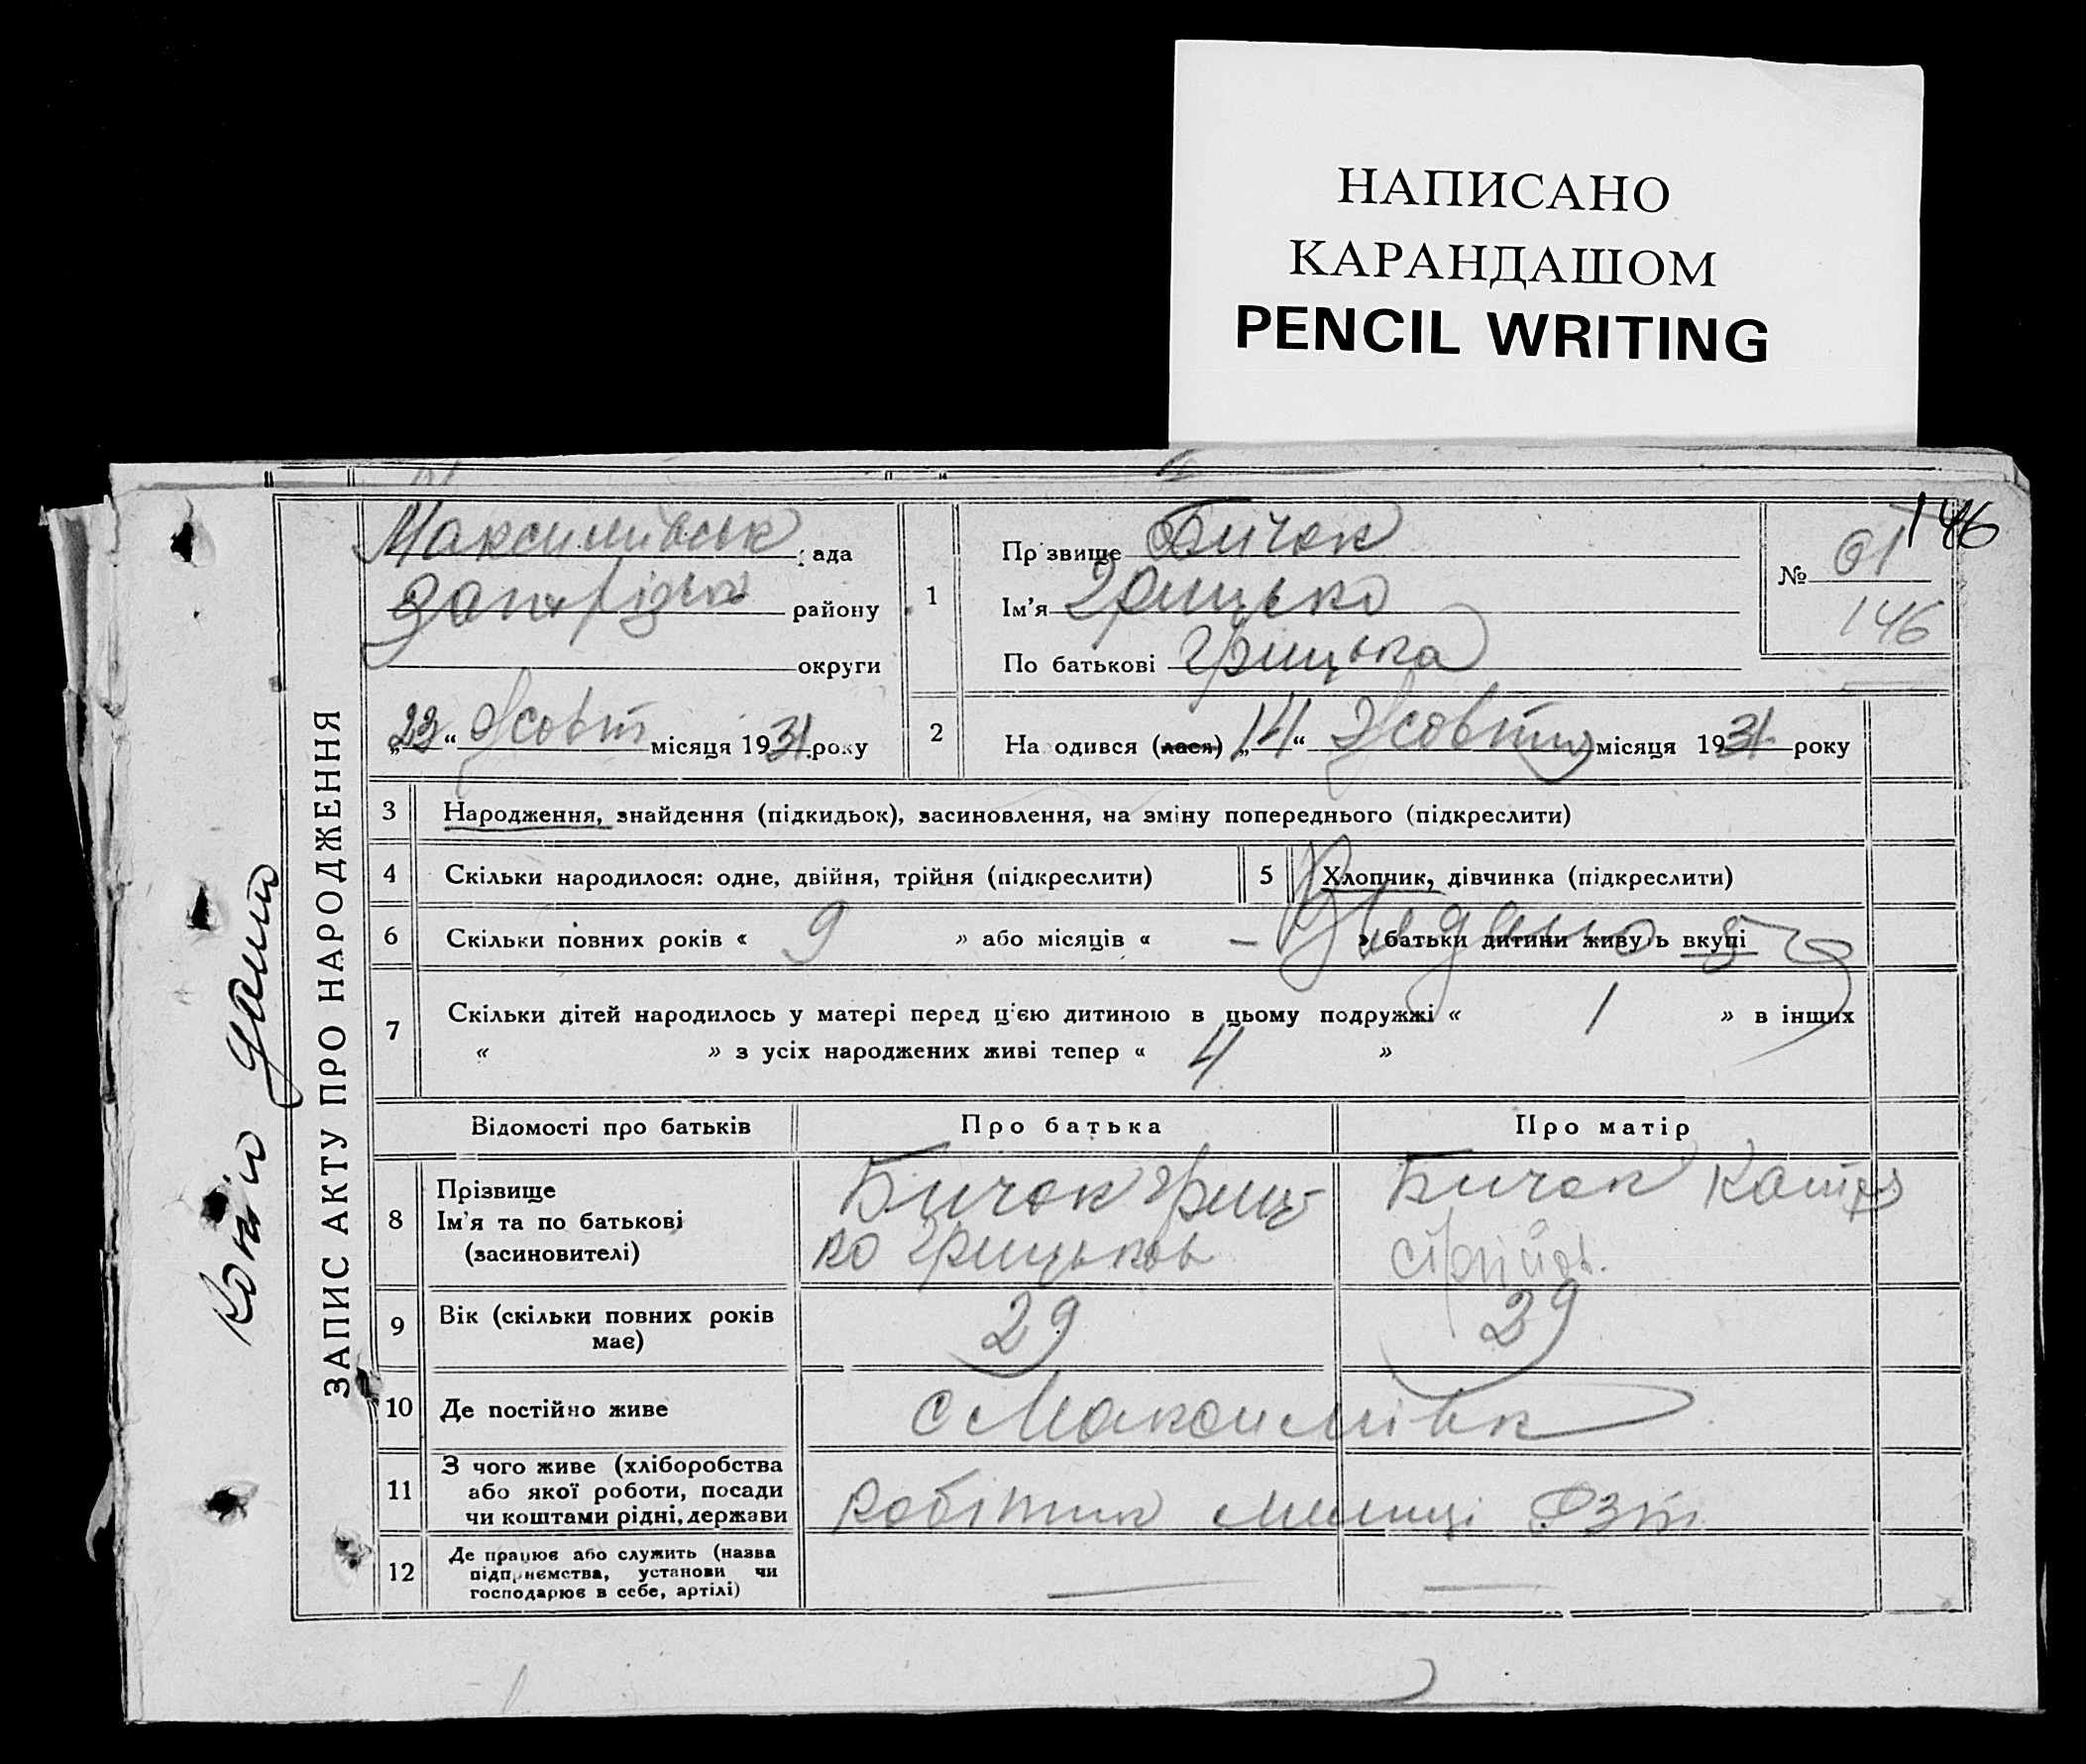 НАПИСАНО
КАРАНДАШОМ
PENCIL WRITING
146
ЗАПИС АКТУ ПРО НАРОДЖЕННЯ
Копію дано
Максимівськ ада
району
округи
„23“ Жовт місяця 1931 року
1
Пр звище Бичек
Ім'я Грицько
По батькові Грицька
№ 61
146
2 На одився (лася) „14“ Жовтня місяця 1931 року
3 Народження, знайдення (підкидьок), засиновлення, на зміну попереднього (підкреслити)
4 Скільки народилося: одне, двійня, трійня (підкреслити)
5 Хлопчик, дівчинка (підкреслити)
6 Скільки повних років « 9 » або місяців « – » батьки дитини живуть вкупі
Видано
7 Скільки дітей народилось у матері перед цією дитиною в цьому подружжі « 1 » в інших
« » з усіх народжених живі тепер « 4 »
Відомості про батьків Про батька Про матір
8 Прізвище
Ім'я та по батькові
(засиновителі)
Бичек Гриць-
ко Грицьков
Бичек
9 Вік (скільки повних років
має)
29 29
10 Де постійно живе с Максимівк
11 З чого живе (хліборобства
або якої роботи, посади
чи коштами рідні, держави
Робітник
12 Де працює або служить (назва
підприємства, установи чи
господарює в себе, артілі)